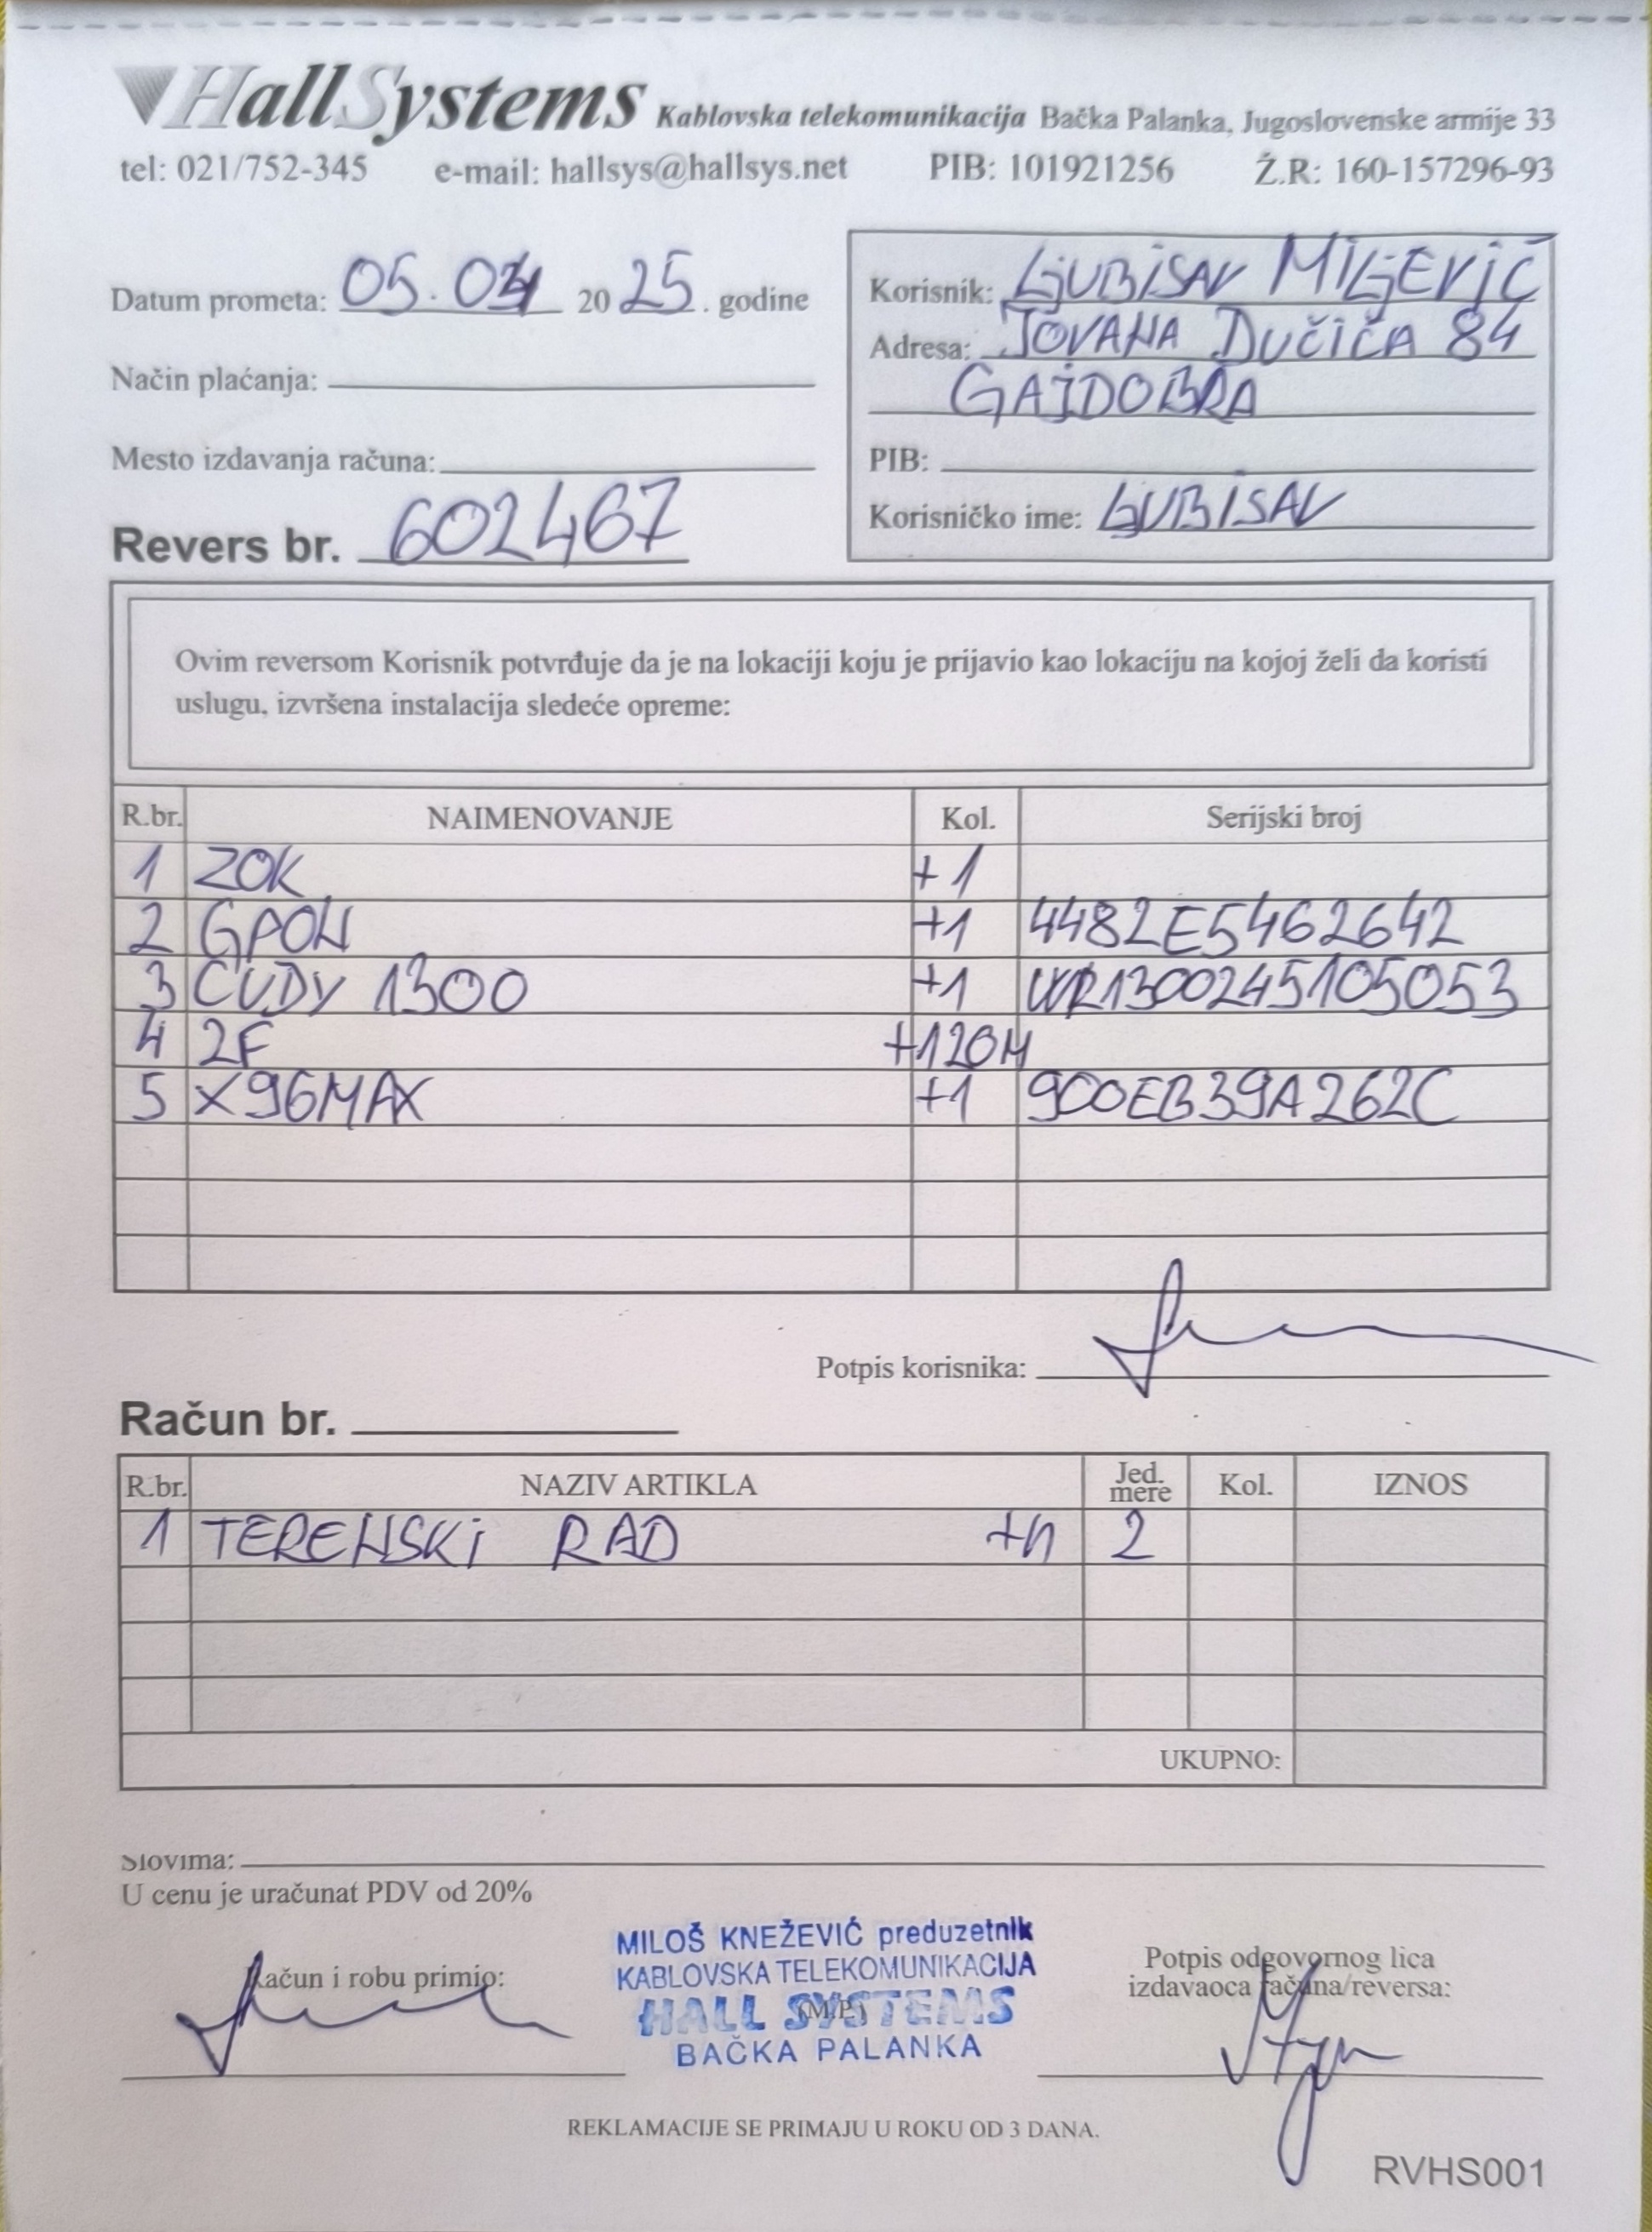 HallSystems Kablovska telekomunikacija Bačka Palanka, Jugoslovenske armije 33
tel: 021/752-345 e-mail: hallsys@hallsys.net PIB: 101921256 Ž.R: 160-157296-93
Datum prometa: 05.04 2025. godine
Način plaćanja:
Mesto izdavanja računa:
Revers br. 602467
Korisnik: LJUBiSAV MiLjEViĆ
Adresa: JOVANA DUČiĆA 84
GAJDOBRA
PIB:
Korisničko ime: LJUBiSAV
Ovim reversom Korisnik potvrđuje da je na lokaciji koju je prijavio kao lokaciju na kojoj želi da koristi
uslugu, izvršena instalacija sledeće opreme:
R.br. NAIMENOVANJE Kol. Serijski broj
1 ZOK +1
2 GPON +1 4482E5462642
3 CUDY 1300 +1 WR1300245105053
4 2F +120M
5 X96MAX +1 900EB39A262C
Potpis korisnika:
Račun br.
R.br. NAZIV ARTIKLA Jed. mere Kol. IZNOS
1 TERENSKi RAD 2
UKUPNO:
Slovima:
U cenu je uračunat PDV od 20%
Račun i robu primio:
MILOŠ KNEŽEVIĆ preduzetnik
KABLOVSKA TELEKOMUNIKACIJA
(M.P.)
HALL SYSTEMS
BAČKA PALANKA
Potpis odgovornog lica
izdavaoca računa/reversa:
REKLAMACIJE SE PRIMAJU U ROKU OD 3 DANA.
RVHS001